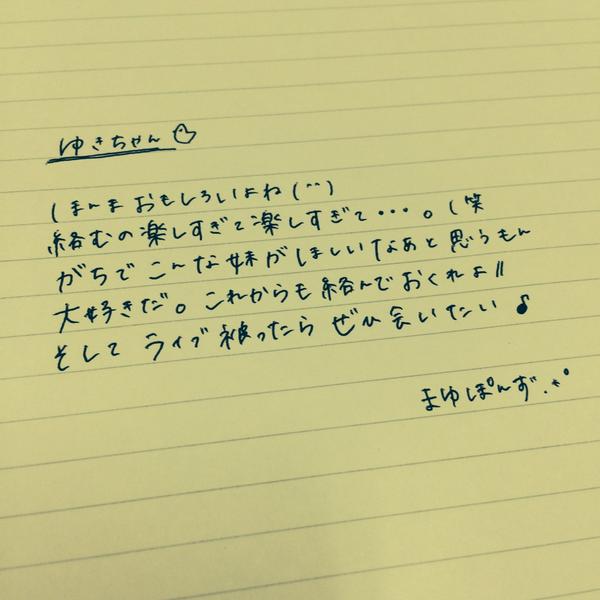 ゆきちゃん
しまんまおもしろいよね(^^)
絡むの楽しすぎて楽しすぎて・・・。(笑
がちでこんな妹がほしいなあと思うもん
大好きだ。これからも絡んでおくれよ!!
そして ライブ被ったら ぜひ会いたい♪
まゆぽんず.*°